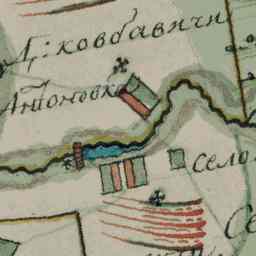 Д: ковбавичи
Антоновка
село
Се